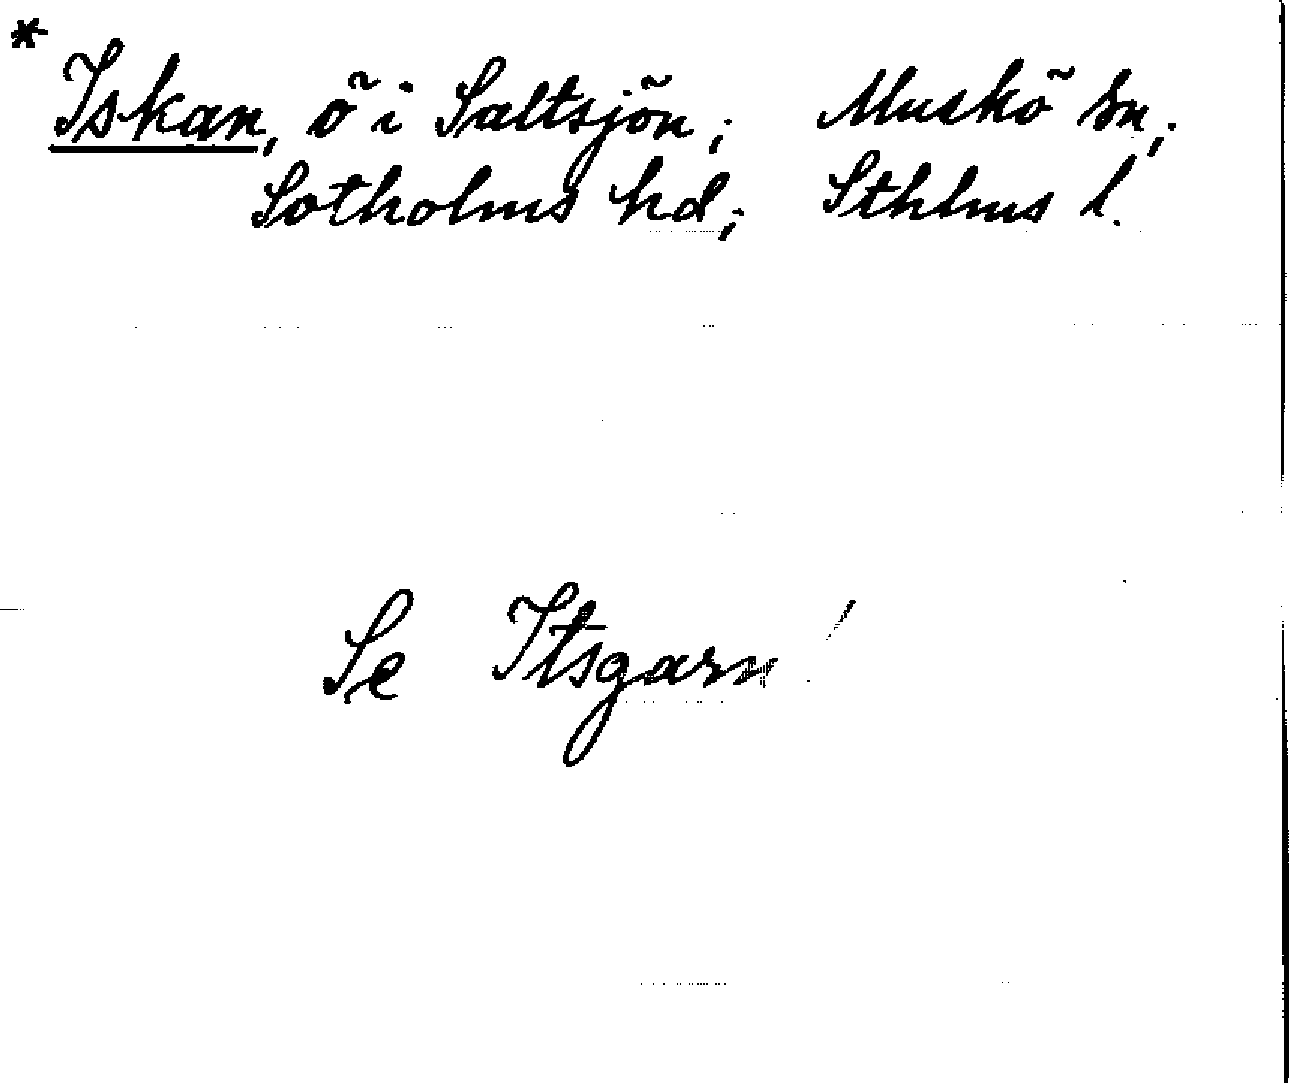 * Iskan, ö i Saltsjön; Muskö sn;
Sotholms hd; Sthlms l.
Se Itsgarn!